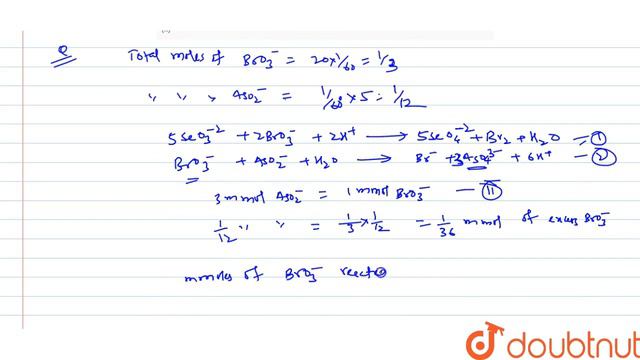 Q Total moles of BrO3^- = 20×1/60 = 1/3
" " " AsO2^- = 1/60×5 = 1/12
5SeO3^-2 + 2BrO3^- + 2H^+ → 5SeO4^-2 + Br2 + H2O =①
BrO3^- + AsO2^- + H2O → Br^- + 3AsO4^3- + 6H^+ —②
3 mmol AsO2^- = 1 mmol BrO3^- —⑪
1/12 " " = 1/3 × 1/12 = 1/36 mmol of excess BrO3^-
mmoles of BrO3^- reacted
doubtnut